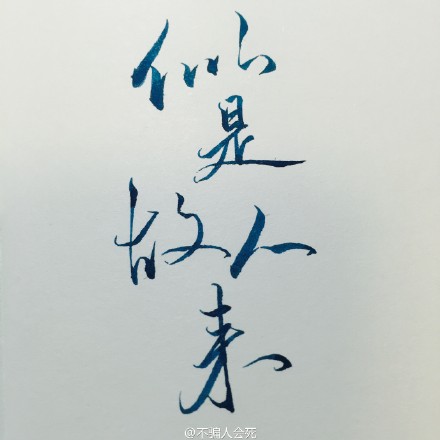 似
是
故人
来
@不骗人会死